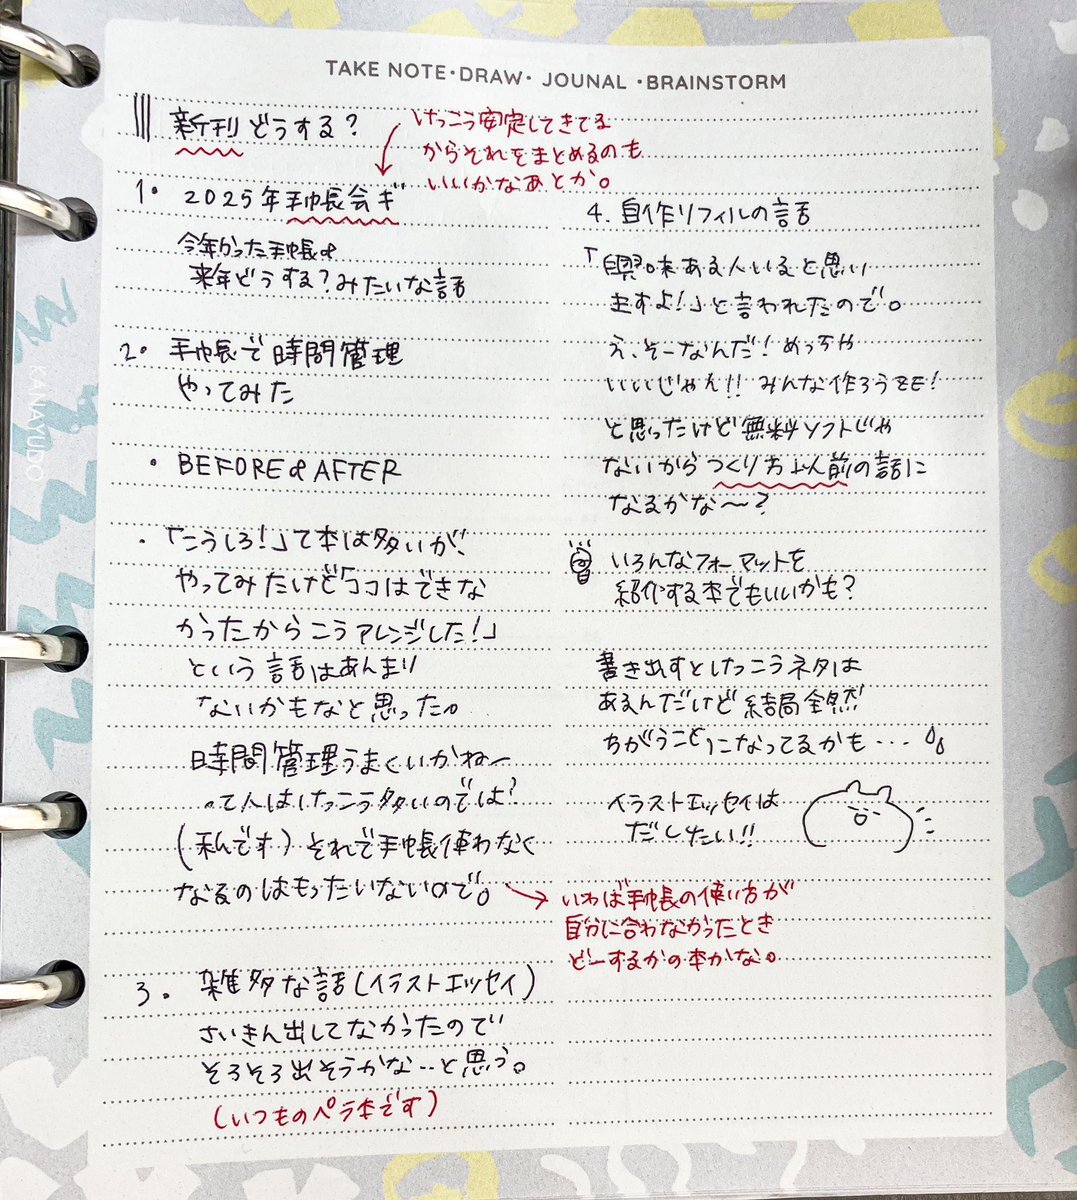 TAKE NOTE・DRAW・ JOUNAL ・BRAINSTORM
新刊どうする?
けっこう安定してきてる
からそれをまとめるのも
いいかなあとか。
1. 2025年手帳会ギ
今年かった手帳&
来年どうする?みたいな話
2. 手帳で時間管理
やってみた
・BEFORE & AFTER
・「こうしろ!」て本は多いが、
やってみたけど「ココはできな
かったからこうアレンジした!」
という話はあんまり
ないかもなと思った。
時間管理うまくいかねー
って人はけっこう多いのでは?
(私です)それで手帳使わなく
なるのはもったいないので。
いわば手帳の使い方が
自分に合わなかったとき
どーするかの本かな。
3. 雑多な話(イラストエッセイ)
さいきん出してなかったので
そろそろ出そうかな‥と思う。
(いつものペラ本です)
4. 自作リフィルの話
「興味ある人いると思い
ますよ!」と言われたので。
え、そーなんだ!めっちゃ
いいじゃん!! みんな作ろうゼ!
と思ったけど無料ソフトじゃ
ないからつくり方以前の話に
なるかな〜?
いろんなフォーマットを
紹介する本でもいいかも?
書き出すとけっこうネタは
あるんだけど結局全然
ちがうことになってるかも…
イラストエッセイは
だしたい!!
KANAYUDO